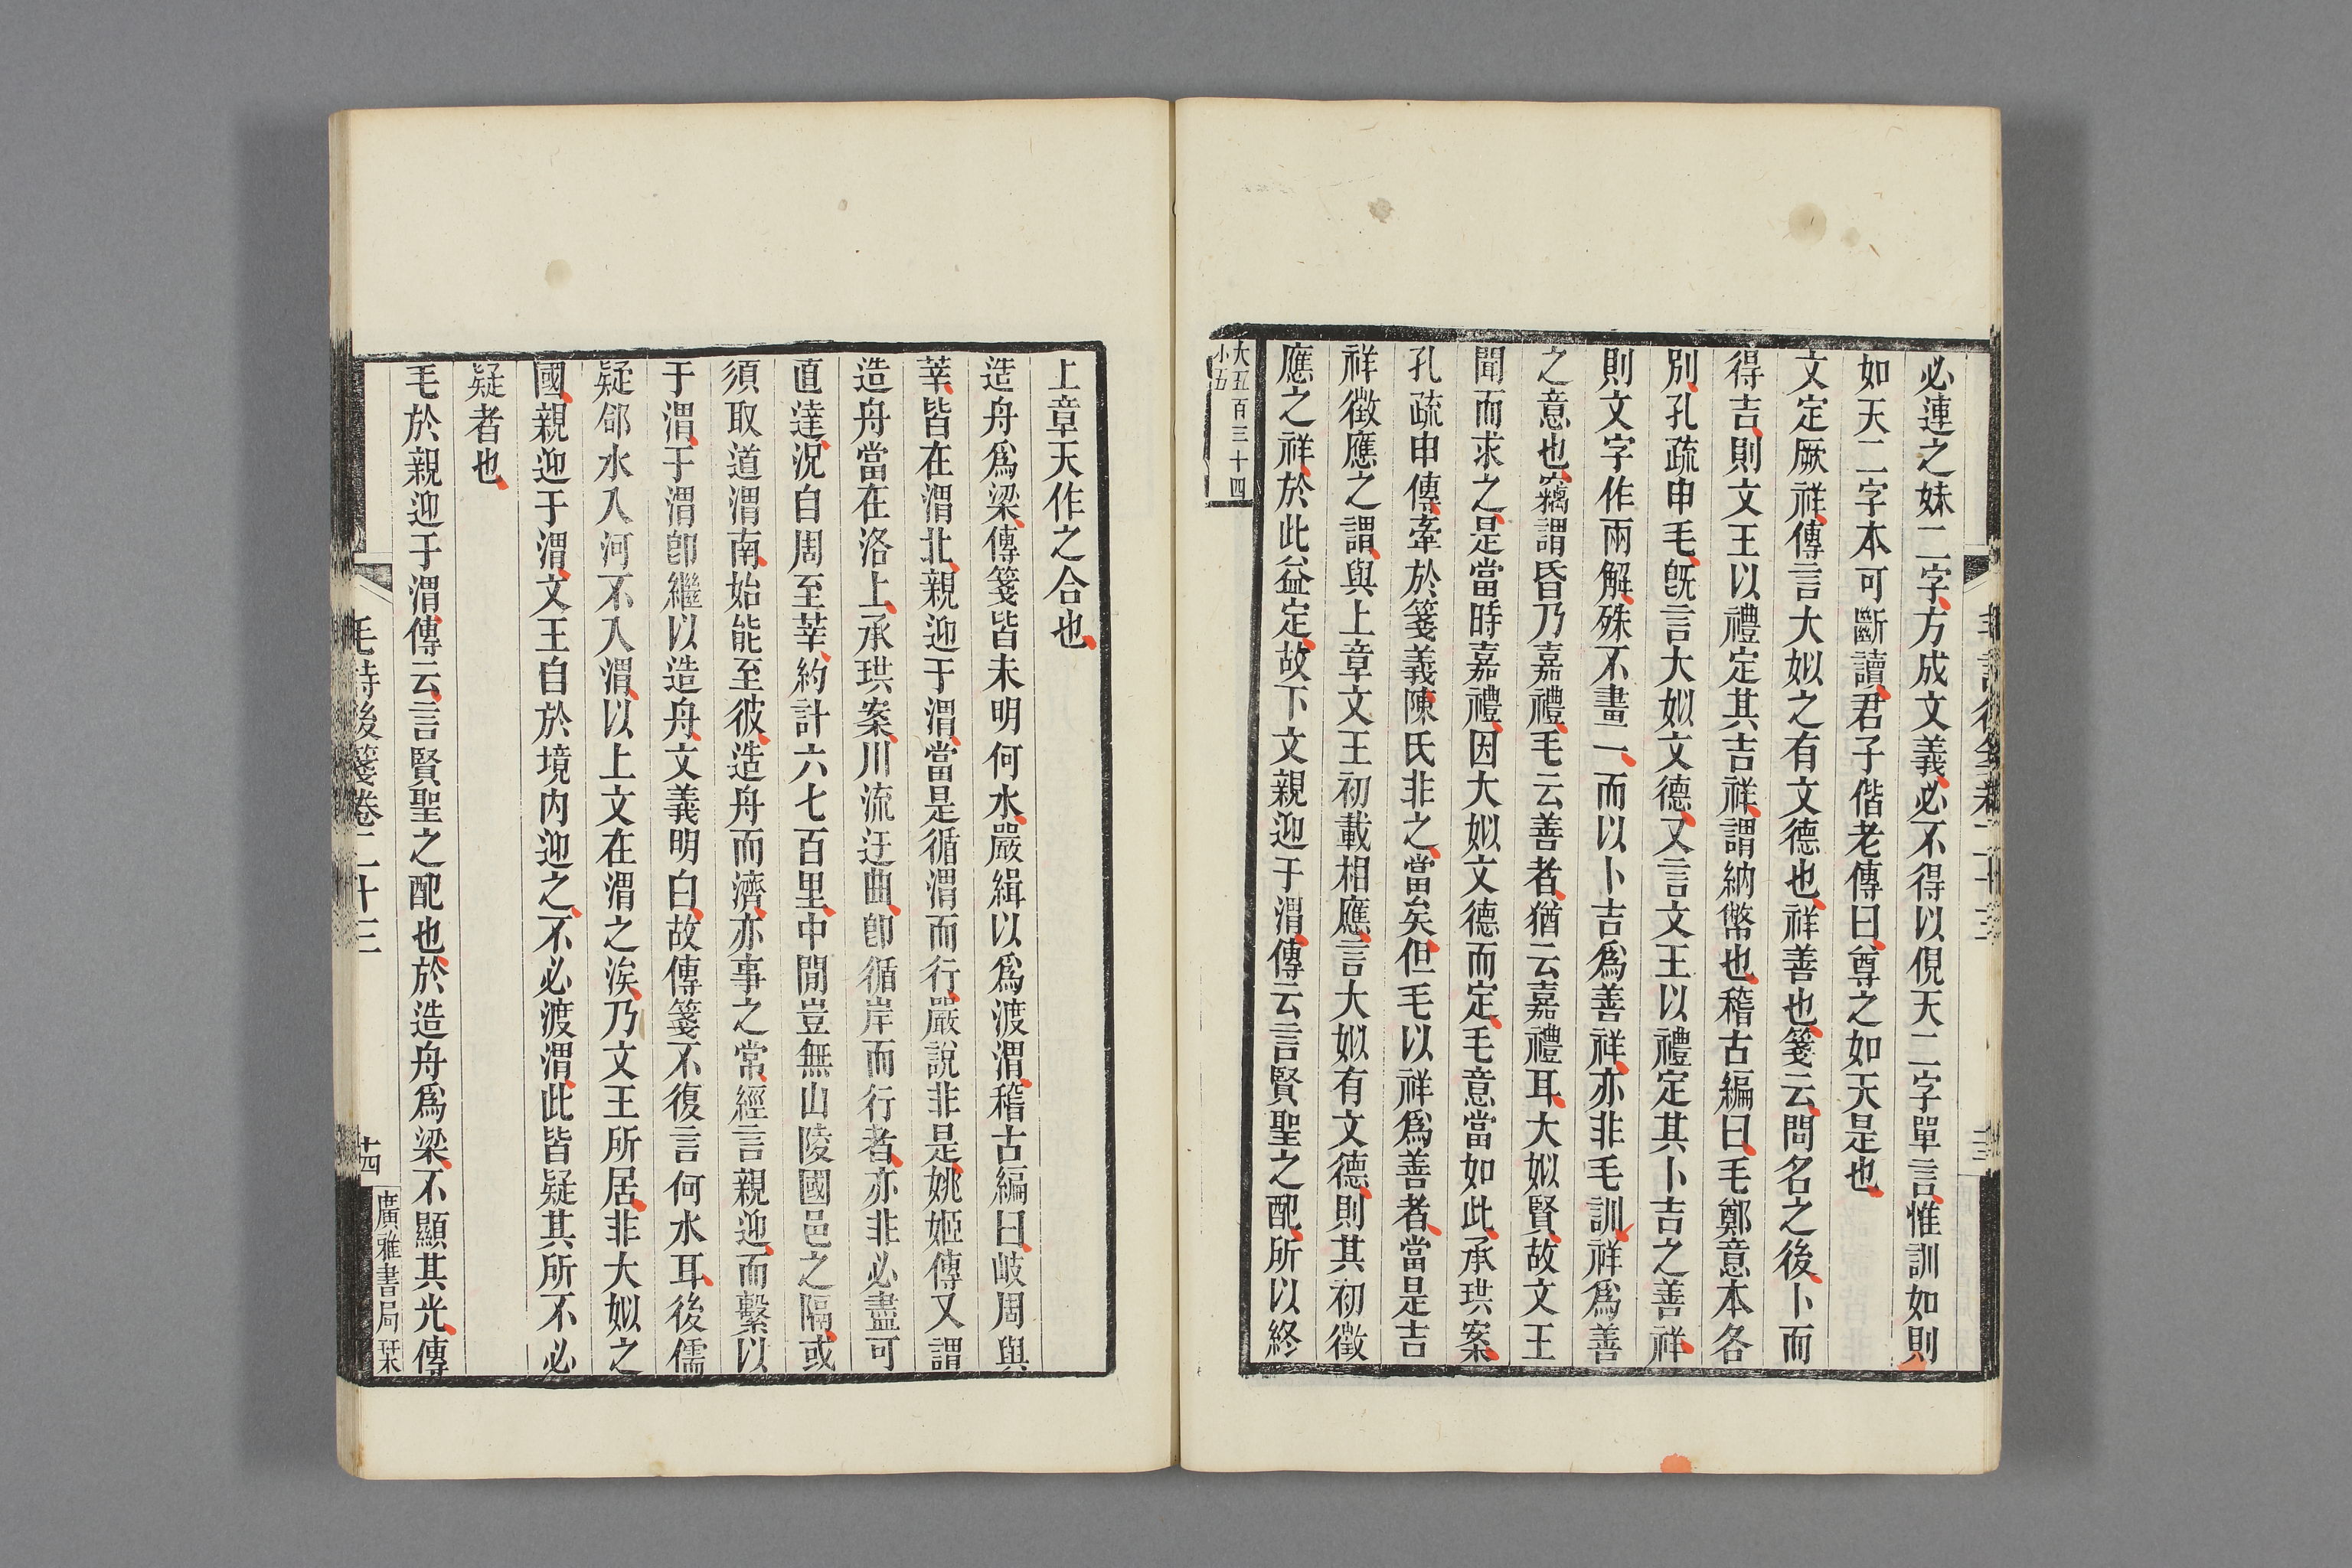 必連之妹二字方成文義必不得以俔天二字單言惟訓如則
如天二字本可斷讀君子偕老傳曰尊之如天是也
文定厥祥傳言大姒之有文德也祥善也箋云問名之後卜而
得吉則文王以禮定其吉祥謂納幣也稽古編曰毛鄭意本各
別孔疏申毛旣言大姒文德又言文王以禮定其卜吉之善祥
則文字作兩解殊不畫一而以卜吉爲善祥亦非毛訓祥爲善
之意也竊謂昏乃嘉禮毛云善者猶云嘉禮耳大姒賢故文王
聞而求之是當時嘉禮因大姒文德而定毛意當如此承珙案
孔疏申傳牽於箋義陳氏非之當矣但毛以祥爲善者當是吉
祥徵應之謂與上章文王初載相應言大姒有文德則其初徵
應之祥於此益定故下文親迎于渭傳云言賢聖之配所以終
大五百三十四
小五
上章天作之合也
造舟爲梁傳箋皆未明何水嚴緝以爲渡渭稽古編曰岐周與
莘皆在渭北親迎于渭當是循渭而行嚴說非是姚姬傳又謂
造舟當在洛上承珙案川流迂曲卽循岸而行者亦非必盡可
直達況自周至莘約計六七百里中閒豈無山陵國邑之隔或
須取道渭南始能至彼造舟而濟亦事之常經言親迎而繫以
于渭于渭卽繼以造舟文義明白故傳箋不復言何水耳後儒
疑郃水入河不入渭以上文在渭之涘乃文王所居非大姒之
國親迎于渭文王自於境內迎之不必渡渭此皆疑其所不必
疑者也
毛於親迎于渭傳云言賢聖之配也於造舟爲梁不顯其光傳
毛詩後箋卷二十三
十四
廣雅書局栞